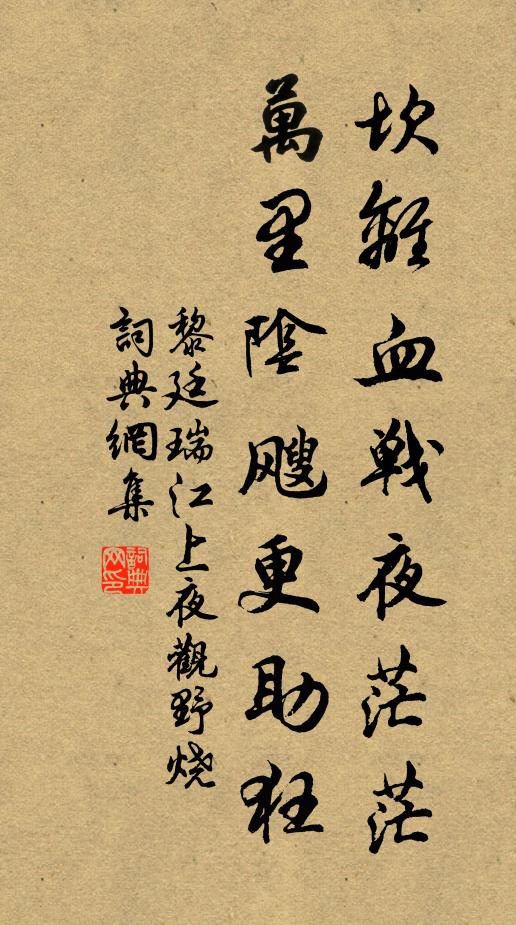 坎離血戰夜茫茫
萬里陰颸更助狂
黎廷瑞江上夜觀野燒
詞典網集
詞典
网印